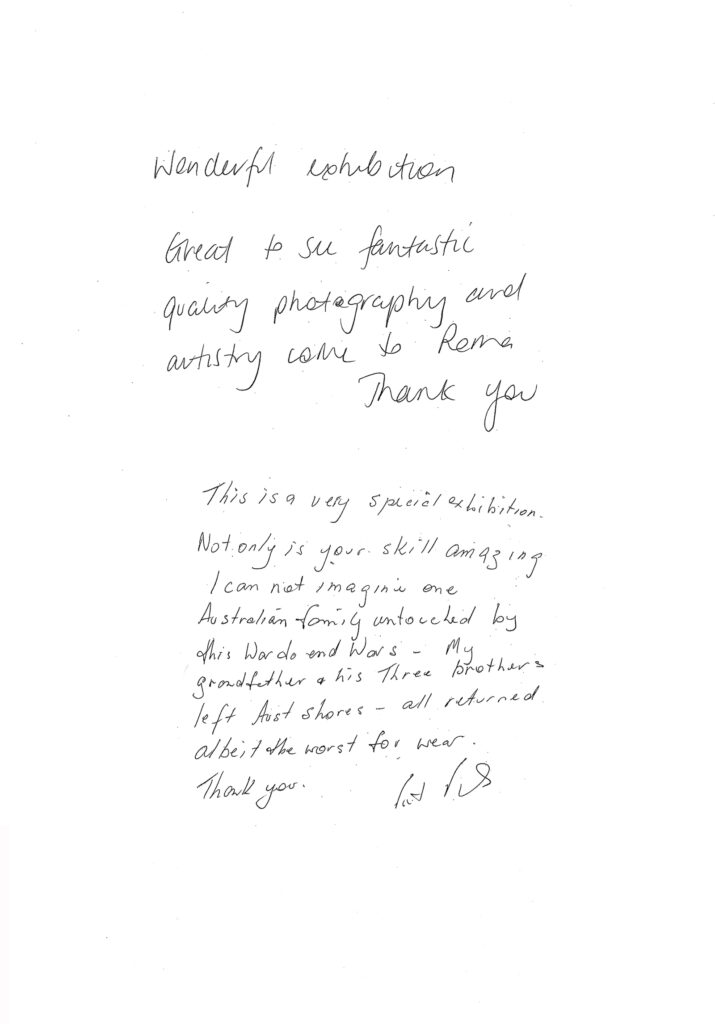 Wonderful exhibition
Great to see fantastic
quality photography and
artistry come to Roma
Thank you
This is a very special exhibition.
Not only is your skill amazing
I can not imagine one
Australian family untouched by
this War to end Wars - My
grandfather & his Three brothers
left Aust shores - all returned
albeit the worst for wear.
Thank you.